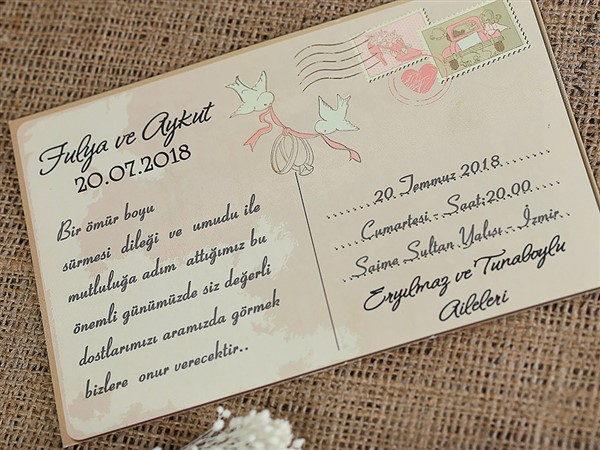 Fulya ve Aykut
20.07.2018
Bir ömür boyu
sürmesi dileği ve umudu ile
mutluluğa adım attığımız bu
önemli günümüzde siz değerli
dostlarımızı aramızda görmek
bizlere onur verecektir..
20 Temmuz 2018
Cumartesi - Saat:20.00
Saime Sultan Yalısı - İzmir
Eryılmaz ve Tunaboylu
Aileleri